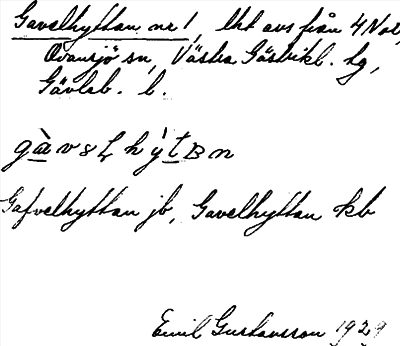 Gavelhyttan nr 1, lht avs från 4 Nor,
Ovansjö sn, Västra Gästrikl. hg,
Gävleb. l.
Gafvelhyttan jb, Gavelhyttan kb
Emil Gustavsson 1929